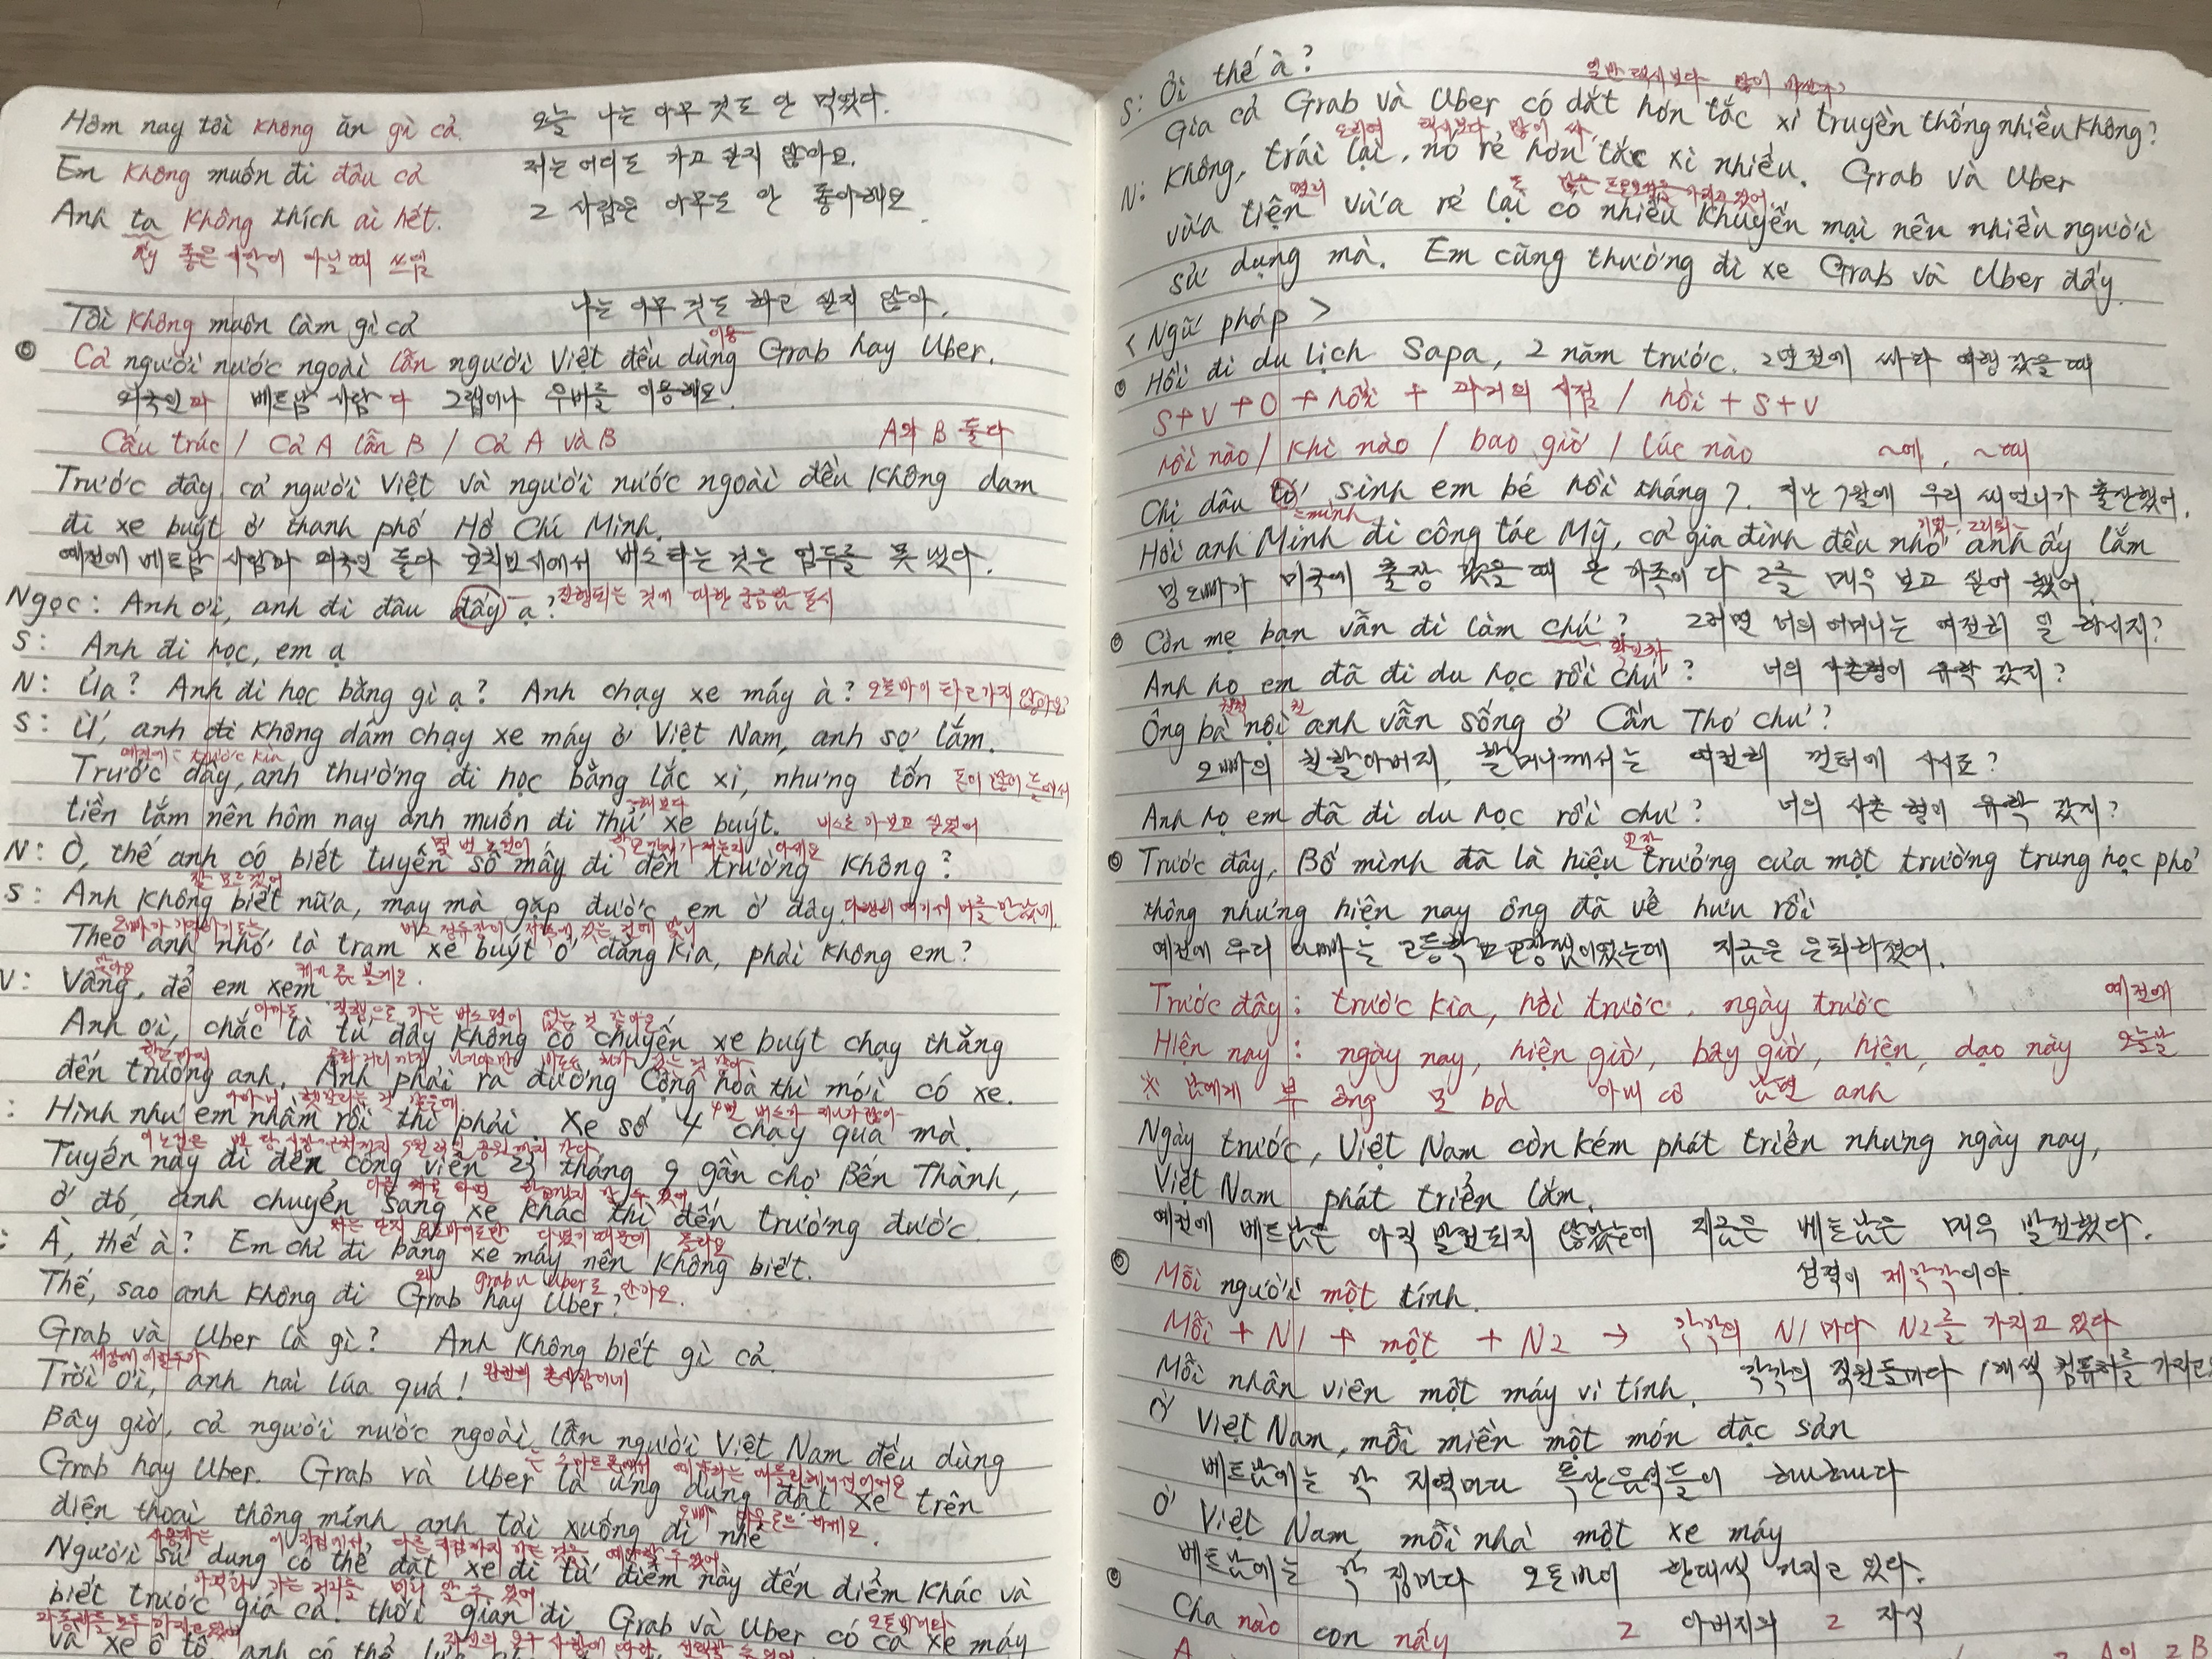 Hôm nay tôi không ăn gì cả. 오늘 나는 아무 것도 안 먹었다.
Em không muốn đi đâu cả 저는 어디도 가고 싶지 않아요.
Anh ta không thích ai hết. 그 사람은 아무도 안 좋아해요.
ấy 좋은 사람이 아닐 때 쓰임
Tôi không muốn làm gì cả 나는 아무 것도 하고 싶지 않아.
이용
Cả người nước ngoài lẫn người Việt đều dùng Grab hay Uber.
외국인과 베트남 사람 다 그랩이나 우버를 이용해요.
Cấu trúc / Cả A lẫn B / Cả A và B A와 B 둘다
Trước đây, cả người Việt và người nước ngoài đều không dam
đi xe buýt ở thanh phố Hồ Chí Minh.
예전에 베트남 사람과 외국인 둘다 호치민시에서 버스 타는 것은 엄두를 못 냈다.
Ngọc: Anh ơi, anh đi đâu đấy ạ? 진행되는 것에 대한 궁금함 표시
S: Anh đi học, em ạ
N: Ủa? Anh đi học bằng gì ạ? Anh chạy xe máy à? 오토바이 타고 가지 않아요?
S: Ừ, anh đi không dám chạy xe máy ở Việt Nam, anh sợ lắm.
예전에 = trước kia
Trước đây, anh thường đi học bằng tắc xi, nhưng tốn 돈이 많이 들어서
해보다
tiền lắm nên hôm nay anh muốn đi thử xe buýt. 버스로 가보고 싶었어
몇 번 노선이 학교까지 가는지 아세요
N: Ò, thế anh có biết tuyến số mấy đi đến trường không?
잘 모르겠어
S: Anh không biết nữa, may mà gặp được em ở đây. 다행히 여기서 너를 만났네.
Theo anh nhớ là trạm xe buýt ở đằng kia, phải không em?
V: Vâng, để em xem 제가 좀 볼게요.
아마도 직행으로 가는 버스편이 없는 것 같아요
Anh ơi, chắc là từ đây không có chuyến xe buýt chạy thẳng
학교까지
đến trường anh. Anh phải ra đường Cộng hoà thì mới có xe.
4번 버스가
: Hình như em nhầm rồi thì phải. Xe số 4 chạy qua mà.
Tuyến này đi đến công viên 23 tháng 9 gần chợ Bến Thành,
ở đó, anh chuyển sang xe khác thì đến trường được.
저는 단지 오토바이로만 다녔기 때문에 몰라요
: À, thế à? Em chỉ đi bằng xe máy nên không biết.
왜 grab나 uber로 안가요.
Thế, sao anh không đi Grab hay Uber?
Grab và Uber là gì? Anh không biết gì cả.
세상에 이럴수가
Trời ơi, anh hai lúa quá! 완전히 촌사람이네
Bây giờ, cả người nước ngoài lẫn người Việt Nam đều dùng
Grab hay Uber. Grab và Uber là ứng dụng đặt xe trên
điện thoại thông minh anh tải xuống đi nhé
Người sử dụng có thể đặt xe đi từ điểm này đến điểm khác và
biết trước giá cả, thời gian đi Grab và Uber có cả xe máy
và xe ô tô, anh có thể
S: Ôi thế à?
일반 택시보다 많이 비싼가?
Gía cả Grab và Uber có đắt hơn tắc xi truyền thống nhiều không?
오히려 택시보다 많이 싸.
N: Không, trái lại, nó rẻ hơn tắc xi nhiều. Grab và Uber
편리 또 많은 프로모션을 가지고 있어.
vừa tiện vừa rẻ lại có nhiều khuyến mại nên nhiều người
sử dụng mà. Em cũng thường đi xe Grab và Uber đấy.
< Ngữ pháp >
Hồi đi du lịch Sapa, 2 năm trước. 2년 전에 싸파 여행 갔을 때
S+V+O + hồi + 과거의 시점 / hồi + S+V
hồi nào / khi nào / bao giờ / lúc nào ~에, ~때
Chị dâu tớ sinh em bé hồi tháng 7. 지난 7월에 우리 새언니가 출산했어.
=mình
Hồi anh Minh đi công tác Mỹ, cả gia đình đều nhớ anh ấy lắm
밍오빠가 미국에 출장 갔을 때 온 가족이 다 그를 매우 보고 싶어 했어.
Còn mẹ bạn vẫn đi làm chứ? 그러면 너의 어머니는 여전히 일 하시지?
확인차
Anh họ em đã đi du học rồi chứ? 너의 사촌형이 유학 갔지?
친척 친
Ông bà nội anh vẫn sống ở Cần Thơ chứ?
오빠의 친할아버지, 할머니께서는 여전히 껀터에 사시죠?
Anh họ em đã đi du học rồi chứ? 너의 사촌 형이 유학 갔지?
교장
Trước đây, Bố mình đã là hiệu trưởng của một trường trung học phổ
thông nhưng hiện nay ông đã về hưu rồi
예전에 우리 아빠는 고등학교 교장쌤이었는데 지금은 은퇴하셨어.
Trước đây: trước kia, hồi trước, ngày trước 예전에
Hiện nay: ngày nay, hiện giờ, bây giờ, hiện, dạo này 오늘날
※ 남에게 부 ông 모 bà 아내 cô 남편 anh
Ngày trước, Việt Nam còn kém phát triển nhưng ngày nay,
Việt Nam phát triển lắm.
예전에 베트남은 아직 발전되지 않았는데 지금은 베트남은 매우 발전했다.
Mỗi người một tính. 성격이 제각각이야
Mỗi + N1 + một + N2 → 각각의 N1 마다 N2를 가지고 있다
Mỗi nhân viên một máy vi tính. 각각의 직원들마다 1개씩 컴퓨터를 가지고
Ở Việt Nam, mỗi miền một món đặc sản
베트남에는 각 지역마다 특산음식들이
Ở Việt Nam, mỗi nhà một xe máy
베트남에는 각 집마다 오토바이 한대씩 가지고 있다.
Cha nào con nấy 그 아버지의 그 자식